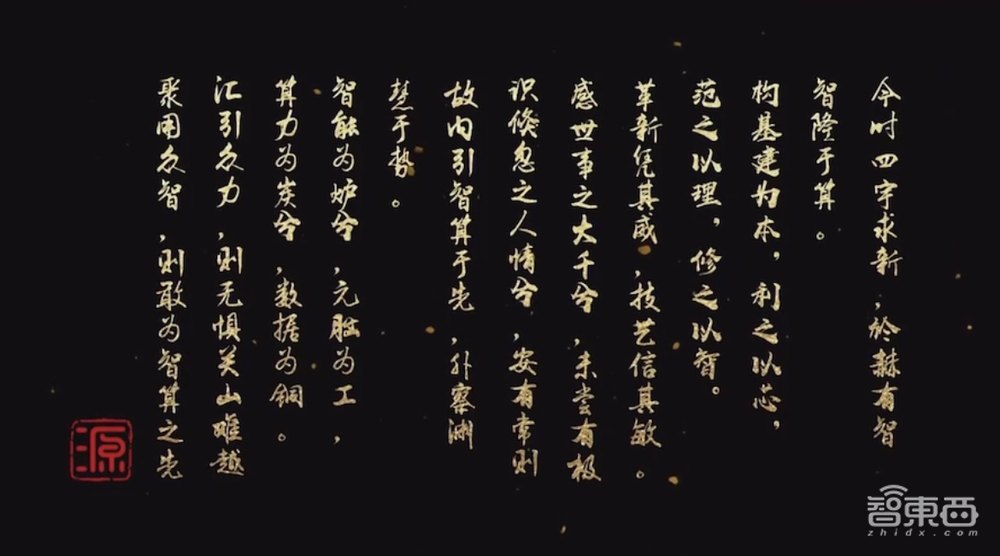 今时四宇求新,於赫有智
智隆于算。
构基建为本,利之以芯,
范之以理,修之以智。
革新凭其威,技艺信其敏。
感世事之大千兮,未尝有极
识倏忽之人情兮,安有常则
故内引智算于先,外察渊
慧于势。
智能为炉兮,元脑为工,
算力为炭兮,数据为铜。
汇引众力,则无惧关山难越
聚用众智,则敢为智算之先
源
智東西
zhidx.com